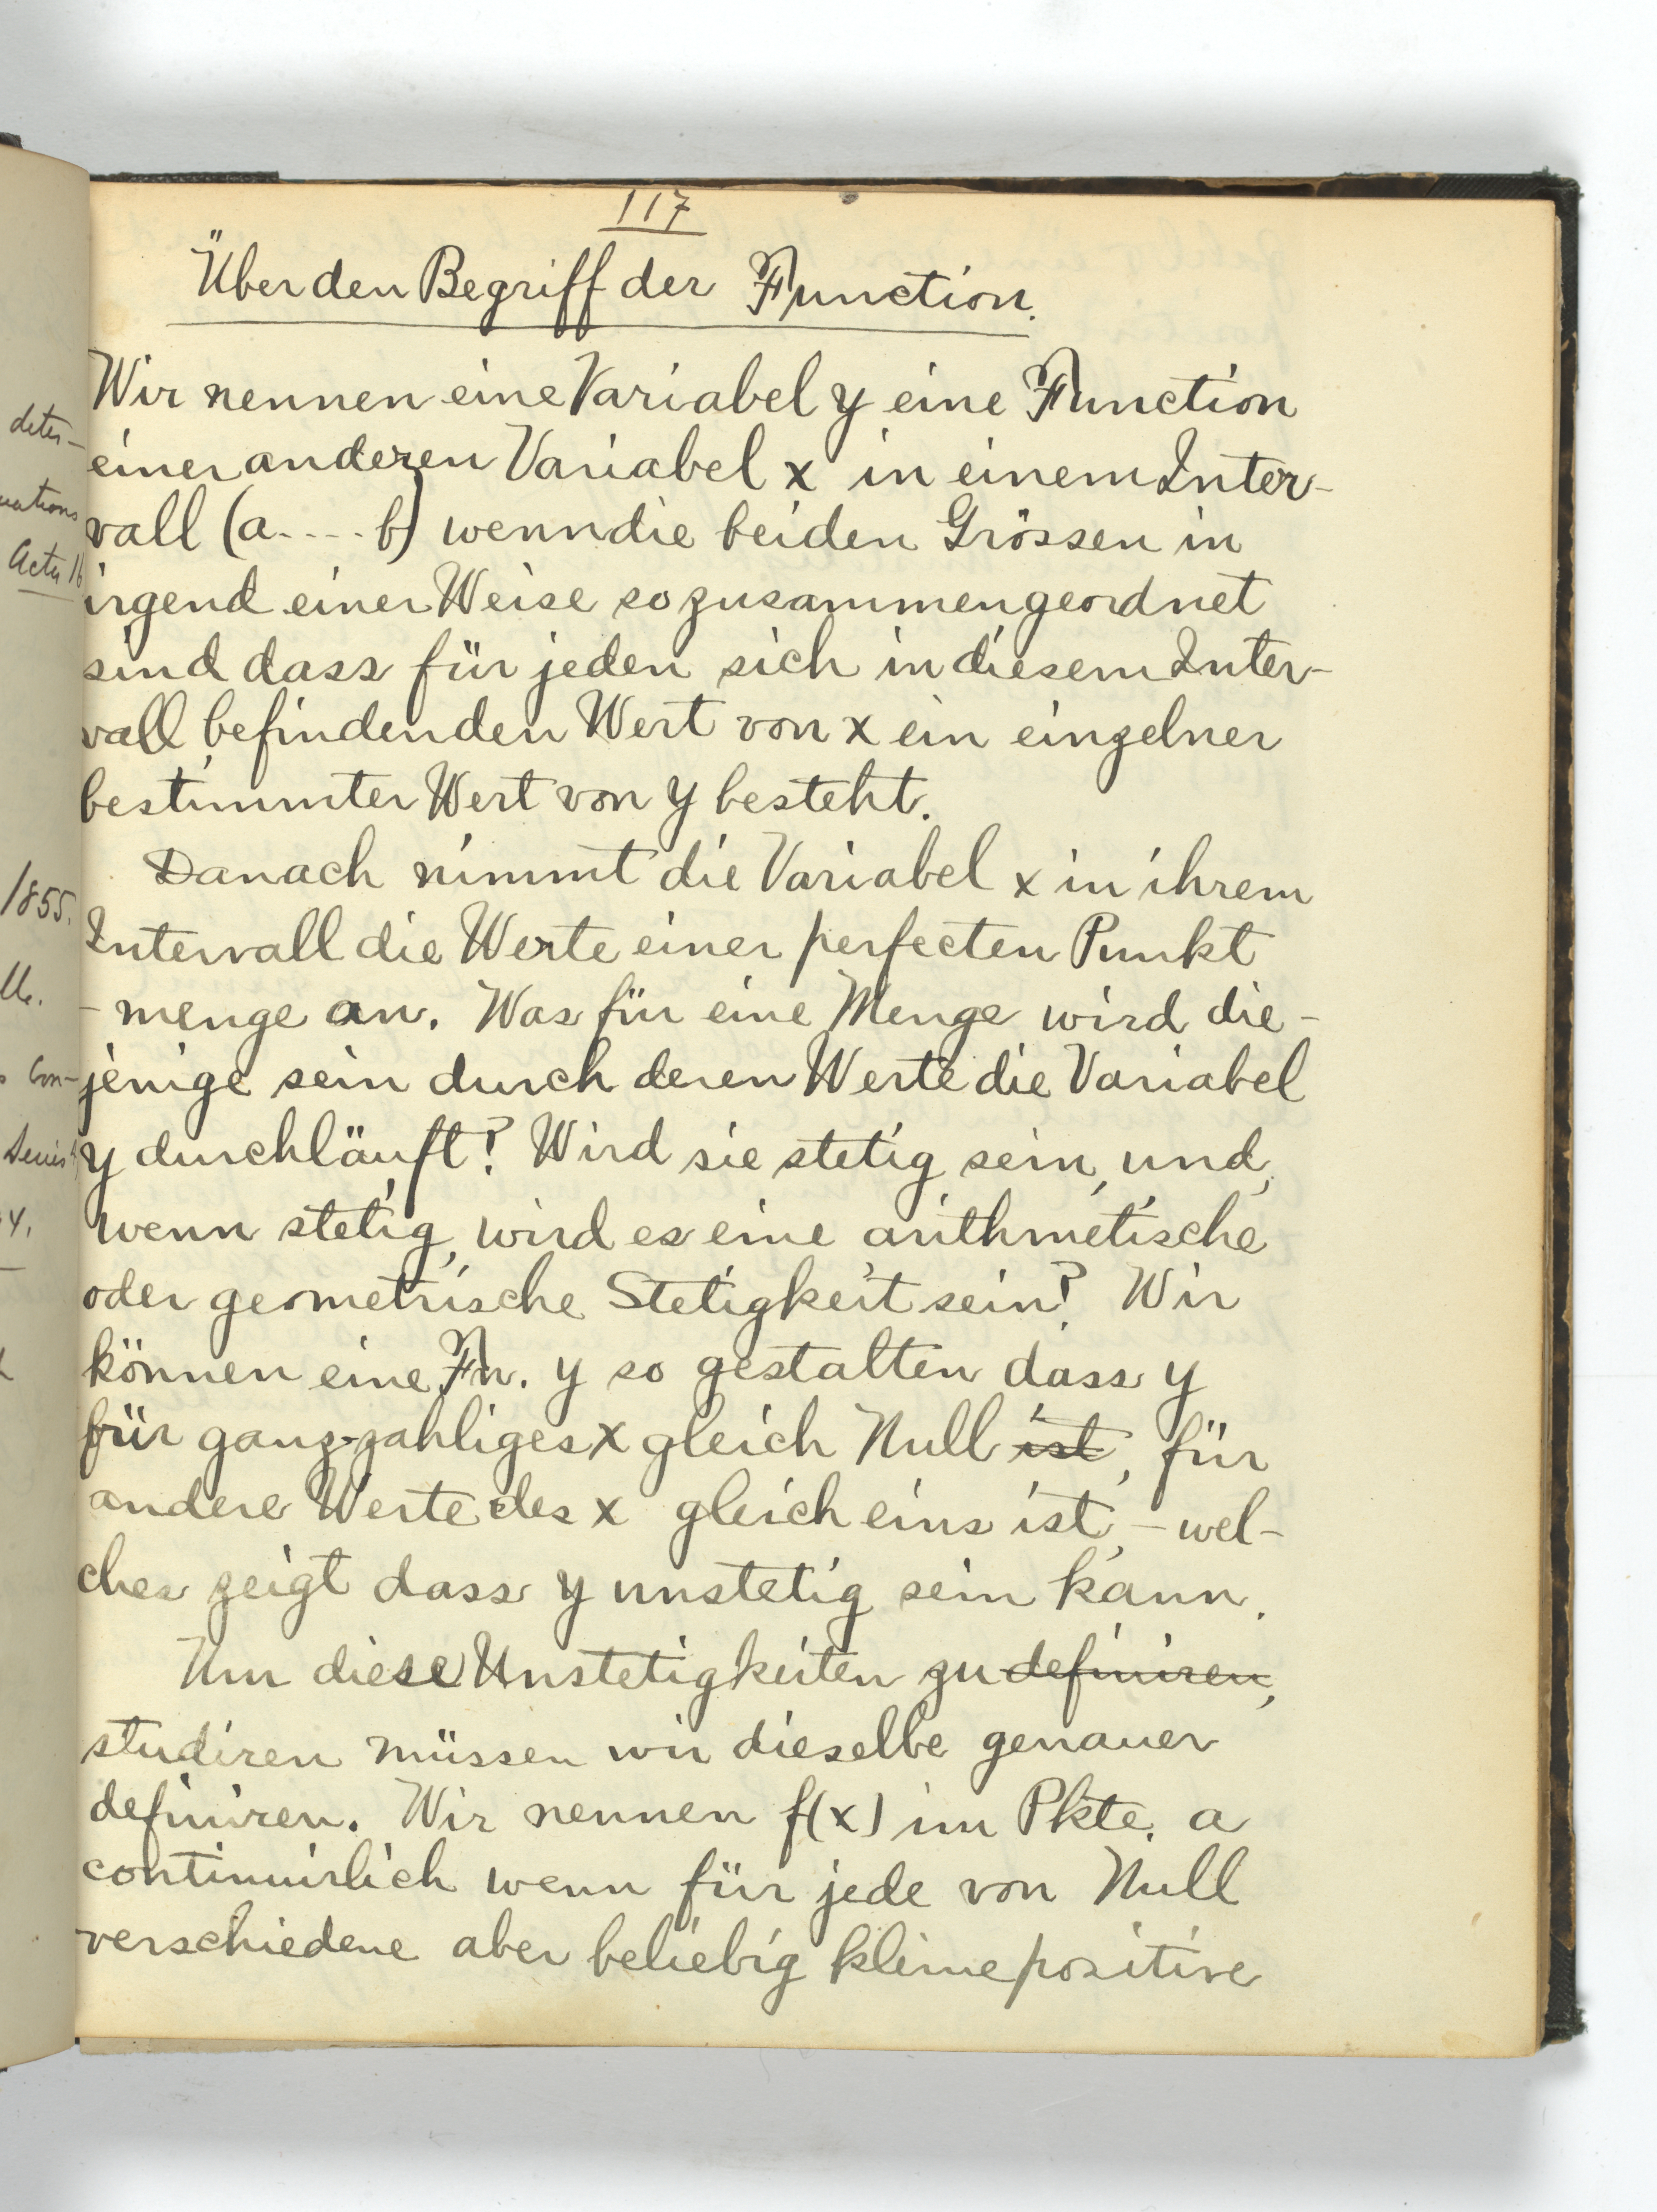 117
Über den Begriff der Function.
Wir nennen eine Variabel y eine Function
einer anderen Variabel x in einem Inter-
vall (a....b) wenn die beiden Grössen in
irgend einer Weise so zusammengeordnet
sind dass für jeden sich in diesem Inter-
vall befindenden Wert von x ein einzelner
bestimmter Wert von y besteht.
Danach nimmt die Variabel x in ihrem
Intervall die Werte einer perfecten Punkt
-menge an. Was für eine Menge wird die-
jenige sein durch deren Werte die Variabel
y durchläuft? Wird sie stetig sein, und,
wenn stetig, wird es eine arithmetische
oder geometrische Stetigkeit sein? Wir
können eine Fn. y so gestalten dass y
für ganz-zahliges x gleich Null ist, für
andere Werte des x gleich eins ist, - wel-
ches zeigt dass y unstetig sein kann.
Um diese Unstetigkeiten zu definiren,
studiren müssen wir dieselbe genauer
definiren. Wir nennen f(x) im Pkte. a
continuirlich wenn für jede von Null
verschiedene aber beliebig kleine positive
deter-
Acta 16
1855.
Con-